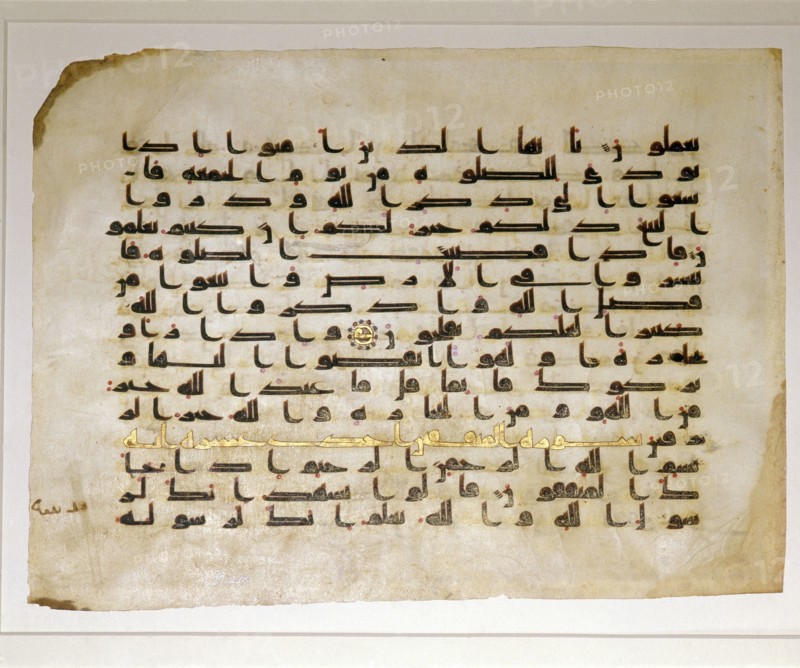 تعملون يا يها الذين امنوا اذا
نودي للصلوة من يوم الجمعة فا
سعوا الى ذكر الله وذروا
البيع ذلكم خير لكم ان كنتم تعلمو
ن فاذا قضيت الصلوة فا
نتشروا في الارض وابتغوا من
فضل الله واذكروا الله
كثيرا لعلكم تفلحون واذا راو
تجرة او لهوا انفضوا اليها و
تركوك قائما قل ما عند الله خير
من اللهو ومن التجرة والله خير الر
زقين سورة المنفقون احدى عشرة اية
بسم الله الرحمن الرحيم اذا جا
ك المنفقون قالوا نشهد انك لر
سول الله والله يعلم انك لرسوله
PHOTO12